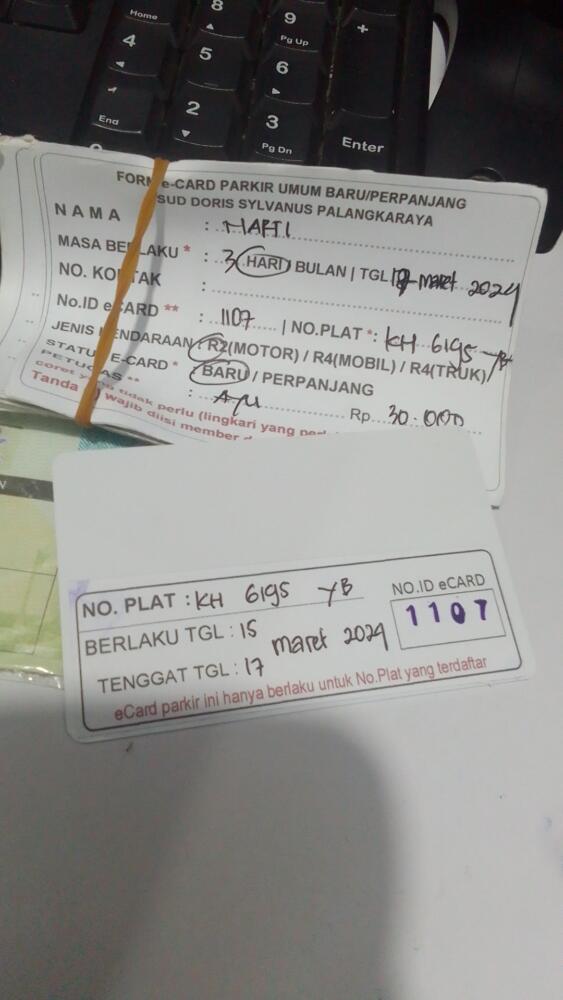 Home
8
9
Pg Up
+
4
5
6
End
2
3
Pg Dn
Enter
FORM e-CARD PARKIR UMUM BARU/PERPANJANG
SUD DORIS SYLVANUS PALANGKARAYA
NAMA :
MASA BERLAKU * : 3 HARI / BULAN | TGL 17 maret 2024
NO. KONTAK :
No.ID eCARD ** : 1107 | NO.PLAT *: KH 6195 YB
JENIS KENDARAAN R2(MOTOR) / R4(MOBIL) / R4(TRUK)
STATUS E-CARD * BARU / PERPANJANG
PETUGAS ** : Ayu Rp. 30.000
coret yang tidak perlu (lingkari yang
Tanda wajib diisi member
NO. PLAT : KH 6195 YB
NO.ID eCARD
1107
BERLAKU TGL : 15 maret 2024
TENGGAT TGL : 17
eCard parkir ini hanya berlaku untuk No.Plat yang terdaftar